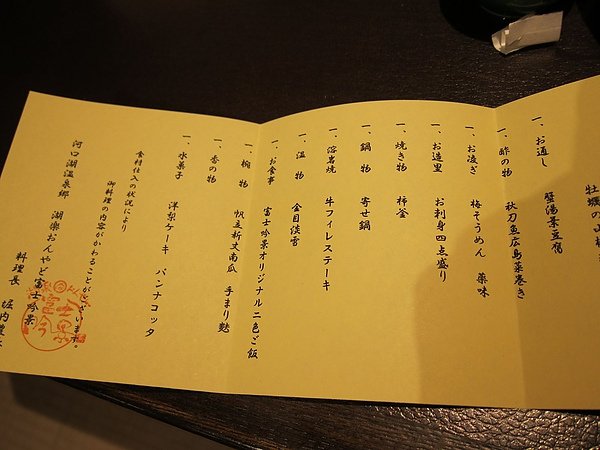 牡蠣の山椒
一、お通し　蟹湯葉豆腐
一、酢の物　秋刀魚広島菜巻き
一、お凌ぎ　梅そうめん　薬味
一、お造里　お刺身四点盛り
一、焼き物　柿釜
一、鍋物　寄せ鍋
一、溶岩焼　牛フィレステーキ
一、温物　金目淡雪
一、お食事　富士吟景オリジナル二色ご飯
一、椀物　帆立新丈南瓜　手まり麩
一、香の物
一、水菓子　洋梨ケーキ　パンナコッタ
食材仕入の状況により
御料理の内容がかわることがございます。
河口湖温泉郷　湖楽おんやど富士吟景
料理長　堀内